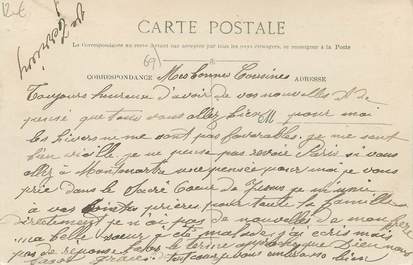 CARTE POSTALE
La Correspondance au recto n'est pas acceptée par tous les pays étrangers, se renseigner à la Poste
69
CORRESPONDANCE ADRESSE
Mes bonnes Cousines
Toujours heureux d'avoir de vos nouvelles et de
pensé que tous vous allez bien pour moi
les hivers ne me sont pas favorables. je me sent
bien vieille je ne pense pas revoir Paris si vous
allez à Montmartre une pensée pour moi je vous
prie dans le Sacré Coeur de Jesus je m'unie
à vos prières pour toute la famille
directement je n'ai pas de nouvelles de mon frere
ma belle soeur à été malade j'ai ecris mais
pas de réponse le terme approche que Dieu nous
fasse grace tout coeur vous embrasse bien